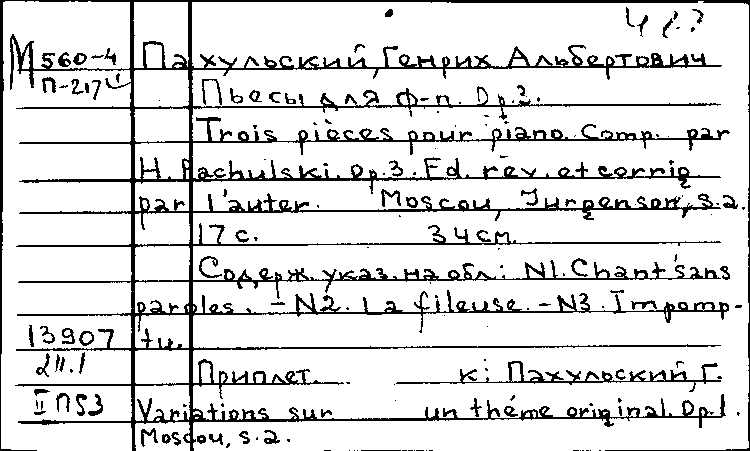 М 560-4 Пахульский, Генрих Альбертович
П-217
Пьесы для ф-п. Op.3.
Trois pièces pour piano. Comp. par
H. Pachulski. Op.3. Ed. rev. et corrig
par l'auter. Moscou, Jurgenson, s.a.
17 с. 34 см.
Содерж. указ. на обл: N1. Chant sans
paroles. - N2. La fileuse. - N3. Impomp-
13907 tu.
Приплет. к: Пахульский, Г.
II П53 Variations sur un théme original. Op.1.
Moscou, s.a.